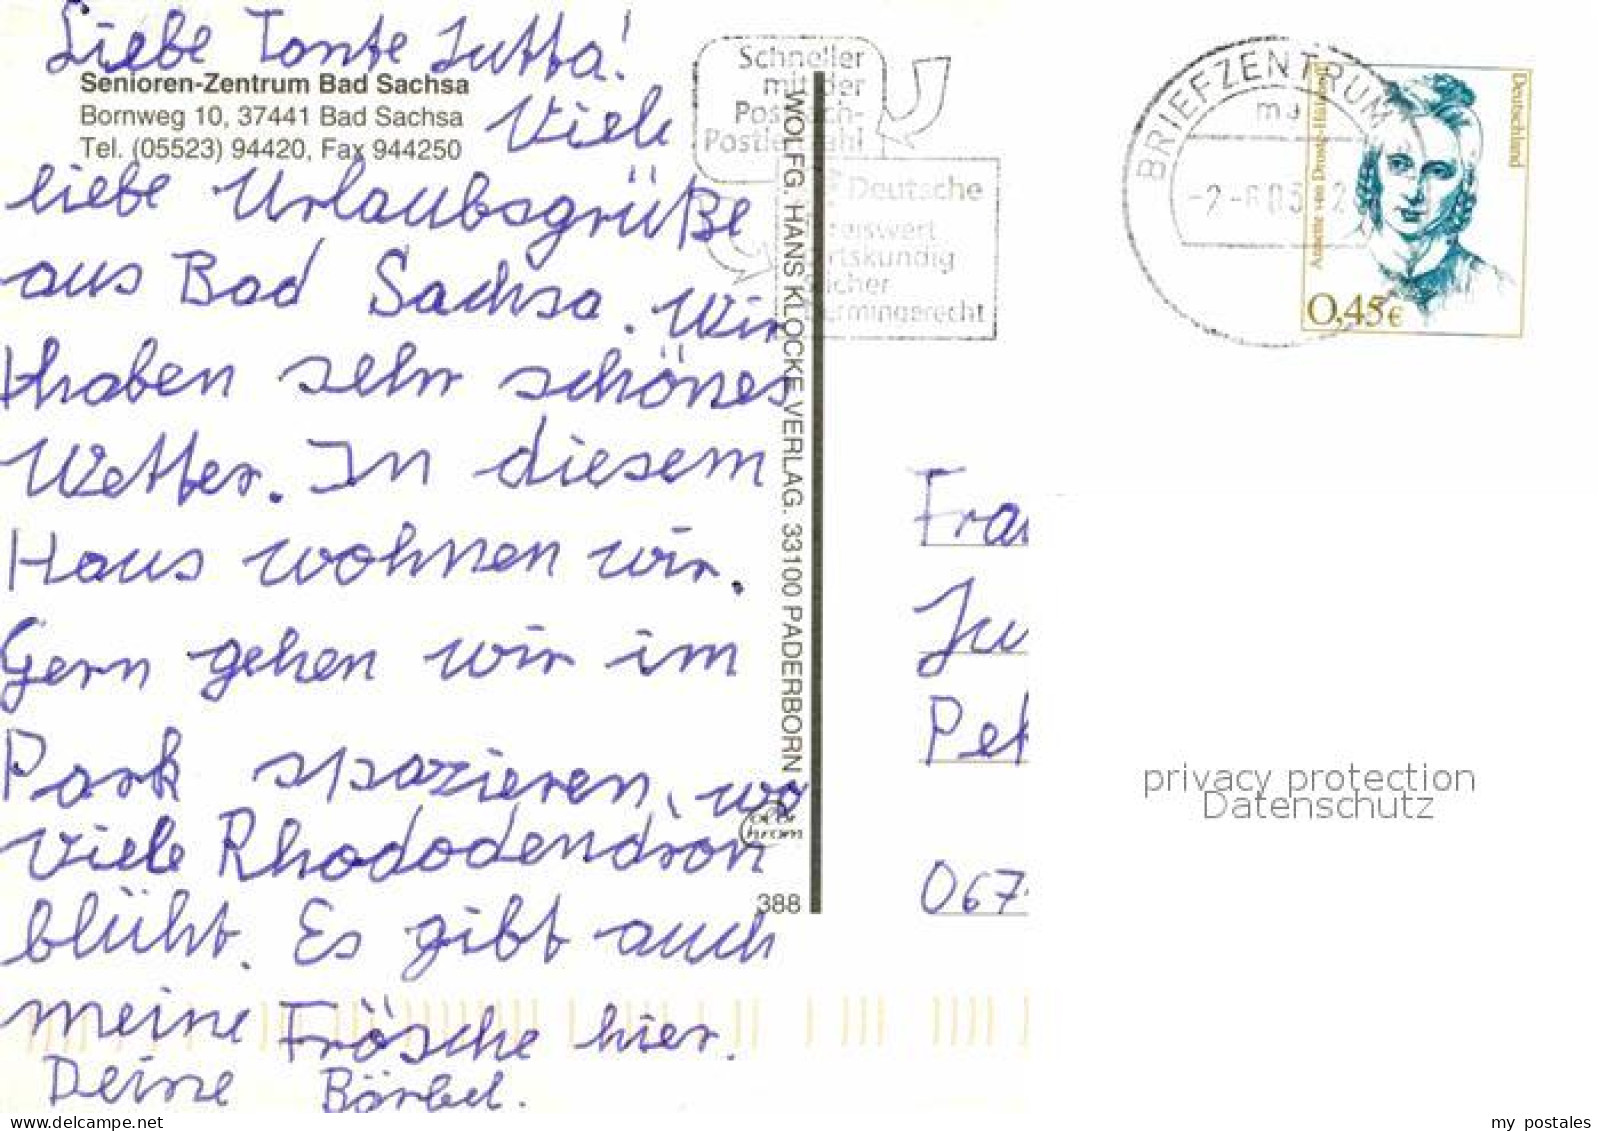 Liebe Tante Jutta!
Senioren-Zentrum Bad Sachsa
Bornweg 10, 37441 Bad Sachsa
Tel. (05523) 94420, Fax 944250
Viele
liebe Urlaubsgrüße
aus Bad Sachsa. Wir
haben sehr schönes
Wetter. In diesem
Haus wohnen wir.
Gern gehen wir im
Park spazieren, wo
viele Rhododendron
blüht. Es gibt auch
meine Frösche hier.
Deine Bärbel.
WOLFG. HANS KLOCKE VERLAG. 33100 PADERBORN
388
Schneller
mit der
Postfach-
Postleitzahl
Deutsche
BRIEFZENTRUM
Deutschland
Annette von Droste-Hülshoff
0,45€
Fra
Ju
Pet
067
privacy protection
Datenschutz
my postales